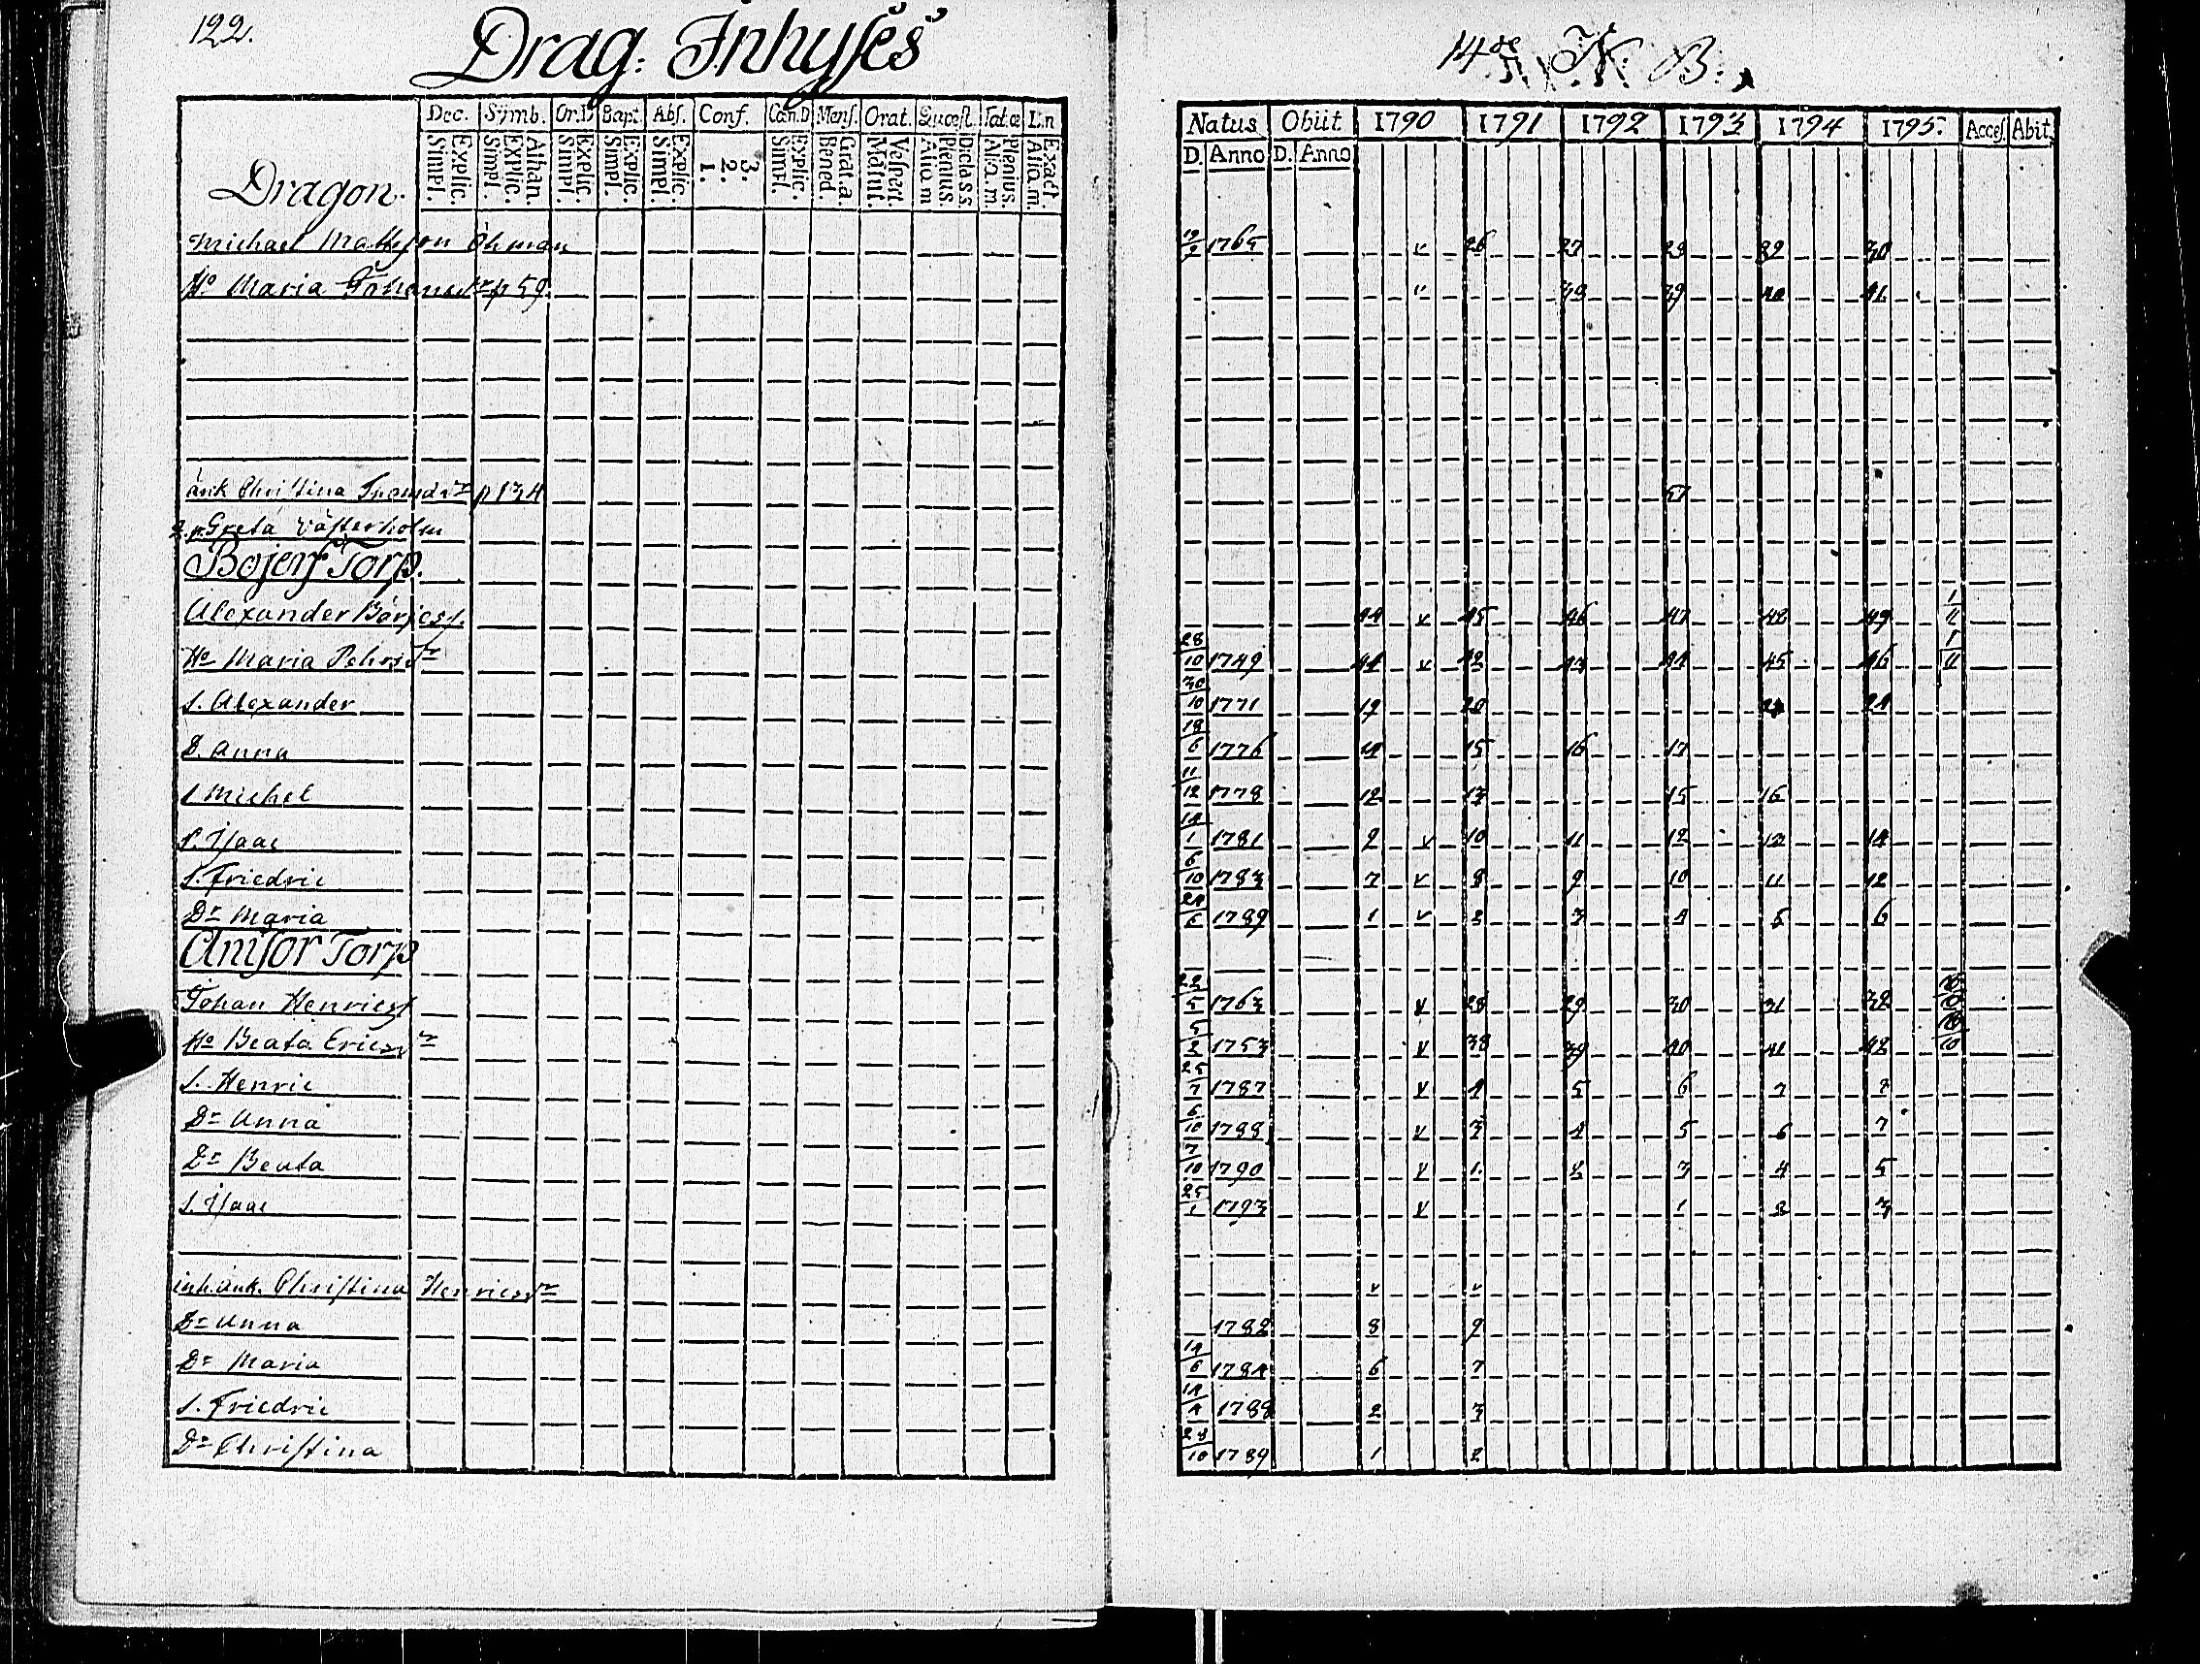 122.
Drag. Inhyses
Dec. Symb. Or.D Bapt. Abs. Conf. Can.D Mens. Orat. Quæst. Tab.œ L.n
Explic. Simpl. Athan. Explic. Simpl. Explic. Simpl. Explic. Simpl. Explic. Simpl. 3. 2. 1. Explic. Simpl. Grat.a. Bened. Vespert. Matut. Dicta S.S. Plenius. Aliq.m Plenius. Aliq.m Exact. Aliq.m.
Dragon.
Michael Mattsson Öhman
H° Maria Johansdr p 59.
änk Christina p 134
Greta Västerholm
Bojens Torp.
Alexander Börjess.
H° Maria Pehrsdr
S. Alexander
D. Anna
S Michel
S. Isaac
S. Friedric
Dr Maria
Anisor Torp
Johan Henricss
H° Beata Ericsdr
S. Henric
Dr Anna
Dr Beata
S. Isaac
inh. änk. Christina Henricsdr
Dr Anna
Dr Maria
S. Friedric
Dr Christina
14de R. K. B.
Natus Obiit 1790 1791 1792 1793 1794 1795. Acces. Abit.
D. Anno D. Anno
19/9 1765 v 26 27 28 29 30
v 38 39 40 41
57
44 v 45 46 47 48 49 1/11
28/10 1749 41 v 42 43 44 45 46 1/11
30/10 1771 19 20 24
18/6 1776 14 15 16 17
11/12 1778 12 13 15 16
14/1 1781 9 v 10 11 12 13 14
6/10 1783 7 v 8 9 10 11 12
1789 1 v 2 3 4 5 6
22/5 1763 v 28 29 30 31 32
5/2 1753 v 38 39 40 41 42
25/7 1787 v 4 5 6 7
6/10 1788 v 3 4 5 6 7
7/10 1790 v 1 2 3 4 5
25/1 1793 v 1 2 3
v v
1782 8 9
14/6 1784 6 7
14/4 1788 2 3
28/10 1789 1 2